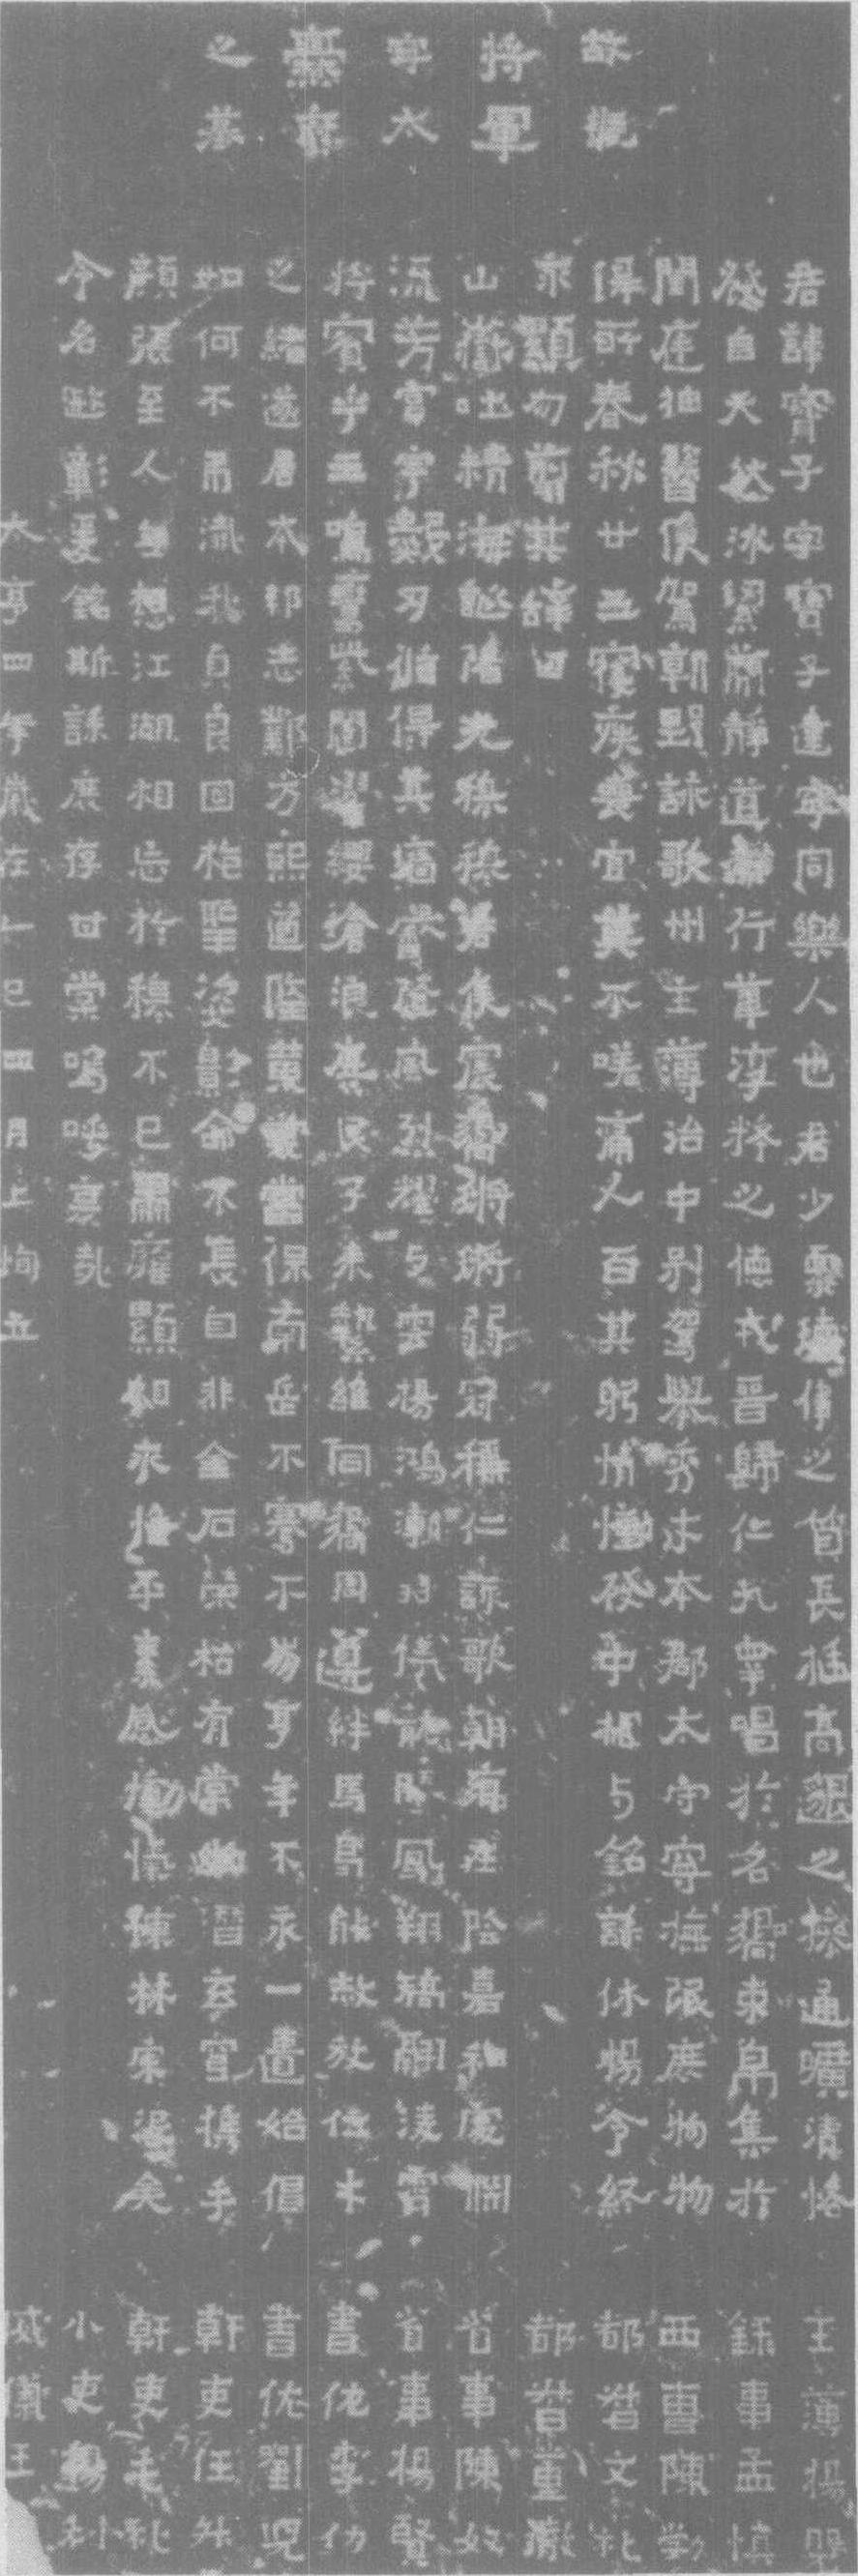 故振
將軍
寧太
爨府
之墓
君諱寶子字寶子建寧同樂人也君少稟瓌偉之質長挺高邈之操通曠清恪
發自天然冰絜簡靜道兼行葦淳粹之德戎晉歸仁九皐唱於名嚮束帛集於
閨庭抽簪俟駕朝野詠歌州主簿治中別駕舉秀才本郡太守寧撫氓庶物物
得所春秋廿三寑疾喪官莫不嗟痛人百其躬情慟發中相与銘誄休揚令終
永顯勿翦其辭曰
山嶽吐精海誕陟光穆穆君侯震嚮鏘鏘弱冠稱仁詠歌朝鄉在陰嘉和處淵
流芳宮宇數刃循得其墻馨隨風烈耀与雲揚鴻漸羽儀龍騰鳳翔矯翮淩霄
將賓乎王鳴鸞紫闥濯纓滄浪庶民子來縶維同嚮周遵絆馬曷能赦放位才
之緒遂居本邦志鄴方熙道隆黃裳當保南岳不騫不崩享年不永一匱始倡
如何不弔殲我貞良回抱聖姿影命不長自非金石榮枯有常幽潛玄穹攜手
顏張至人無想江湖相忘於穆不已肅雍顯相永惟平素感慟愾慷林宋遐矣
令名遐彰爰銘斯誄庶存甘棠嗚呼哀哉
太亨四年歲在乙巳四月上恂立
主簿揚磐
錄事孟慎
西曹陳勃
都督文禮
都督董徹
省事陳奴
省事揚賢
書佐李仂
書佐劉兒
幹吏任升
幹吏毛禮
小吏楊利
威儀王